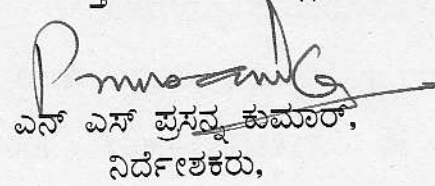 ಎನ್ ಎಸ್ ಪ್ರಸನ್ನ ಕುಮಾರ್,
ನಿರ್ದೇಶಕರು,